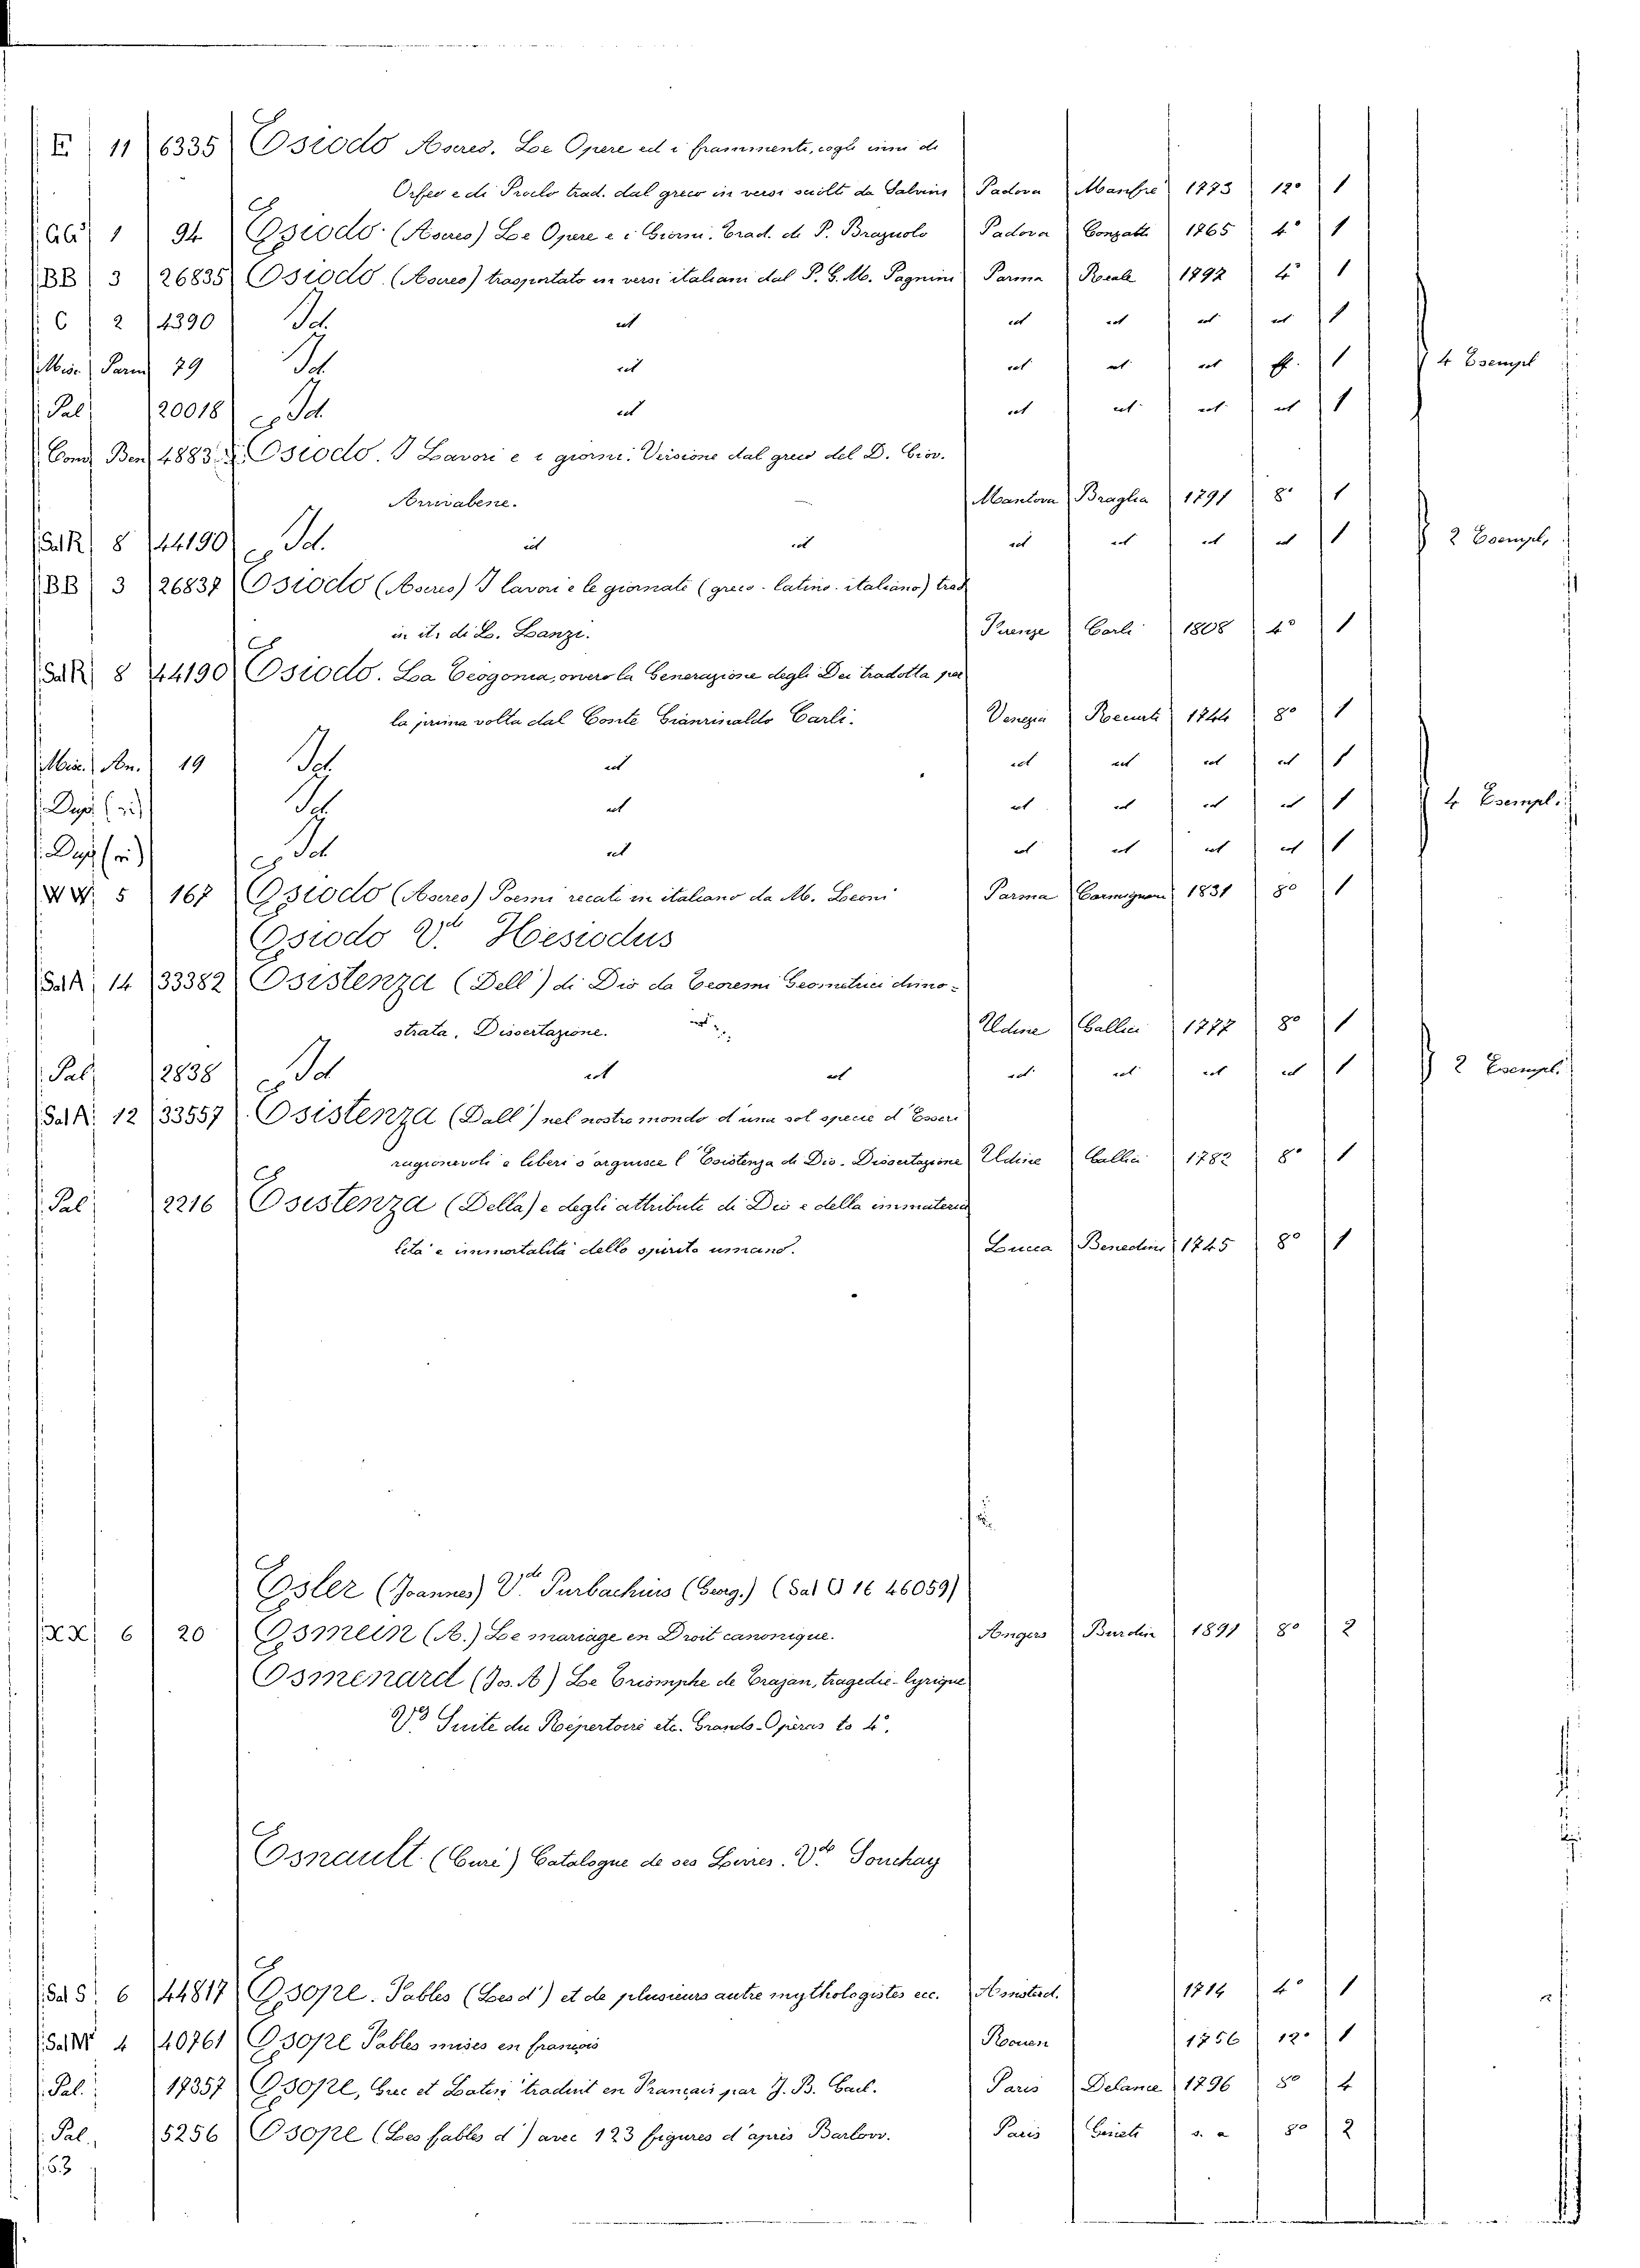 E 11 6335 Esiodo Ascreo. Le Opere ed i frammenti, cogli inni di
Orfeo e di Proclo trad. dal greco in versi sciolt. da Salvini Padova Manfrè 1773 12° 1
1 94 Esiodo (Ascreo) Le Opere e i Giorni. Trad. di P. Braguolo Padova Bonzatti 1865 4° 1
BB 3 26835 Esiodo (Ascreo) trasportato in versi italiani dal P. G. M. Pagnini Parma Reale 1797 4° 1
C 2 4390 Id. id id id id id 1
Misc. Parm 79 Id. id id id id ff. 1 4 Esempl
Pal 20018 Id. id id id id id 1
Com Ben 4883 Esiodo. I Lavori e i giorni. Versione dal greco del D. Giov.
Arrivabene. Mantova Braglia 1791 8° 1
Sal R 8 44190 Id. id id id id id id 1 2 Esempl.
BB 3 26837 Esiodo (Ascreo) I lavori e le giornate (greco-latino-italiano) trad
in it. di L. Lanzi. Firenze Carli 1808 4° 1
Sal R 8 44190 Esiodo. La Teogonia, ovvero la Generazione degli Dei tradotta per
la prima volta dal Conte Gianrinaldo Carli. Venezia Recurti 1744 8° 1
Misc. An. 19 Id. id id id id id 1
Dupl (vi) Id. id id id id id 1 4 Esempl.
Dupl (vi) Id id id id id id 1
WW 5 167 Esiodo (Ascreo) Poemi recati in italiano da M. Leoni Parma Carmignani 1831 8° 1
Esiodo Vd Hesiodus
Sal R 14 33382 Esistenza (Dell') di Dio da Teoremi Geometrici dimo-
strata. Dissertazione. Udine Gallici 1777 8° 1
Pal 2838 Id id id id id id id 1 2 Esempl.
Sal R. 12 33557 Esistenza (Dall') nel nostro mondo d'una sol specie d'Esseri
ragionevoli e liberi s'arguisce l'Esistenza di Dio. Dissertazione Udine Gallici 1782 8° 1
Pal 2216 Esistenza (Della) e degli attributi di Dio e della immateria
lità e immortalità dello spirito umano. Lucca Benedini 1745 8° 1
Esler (Joannes) Vd. Purbachius (Georg.) (Sal Q 16 46059)
XX 6 20 Esmein (A.) Le mariage en Droit canonique. Angers Burdin 1891 8° 2
Esmenard (Jos. A) Le Triomphe de Trajan, tragedie-lyrique
Vd Suite du Répertoire etc. Grands-Opéras to 4°.
Esnault (Curé) Catalogue de ses Livres. Vd. Souchay
Sal S. 6 44817 Esope. Fables (Les d') et de plusieurs autre mythologistes ecc. Amsterd. 1714 4° 1
Sal M 4 40761 Esope Fables mises en françois Rouen 1756 12° 1
Pal. 17357 Esope, Grec et Latin traduit en Français par J. B. Gail. Paris Delance 1796 8° 4
Pal. 5256 Esope (Les fables d') avec 123 figures d'après Barlow. Paris s. a 8° 2
53